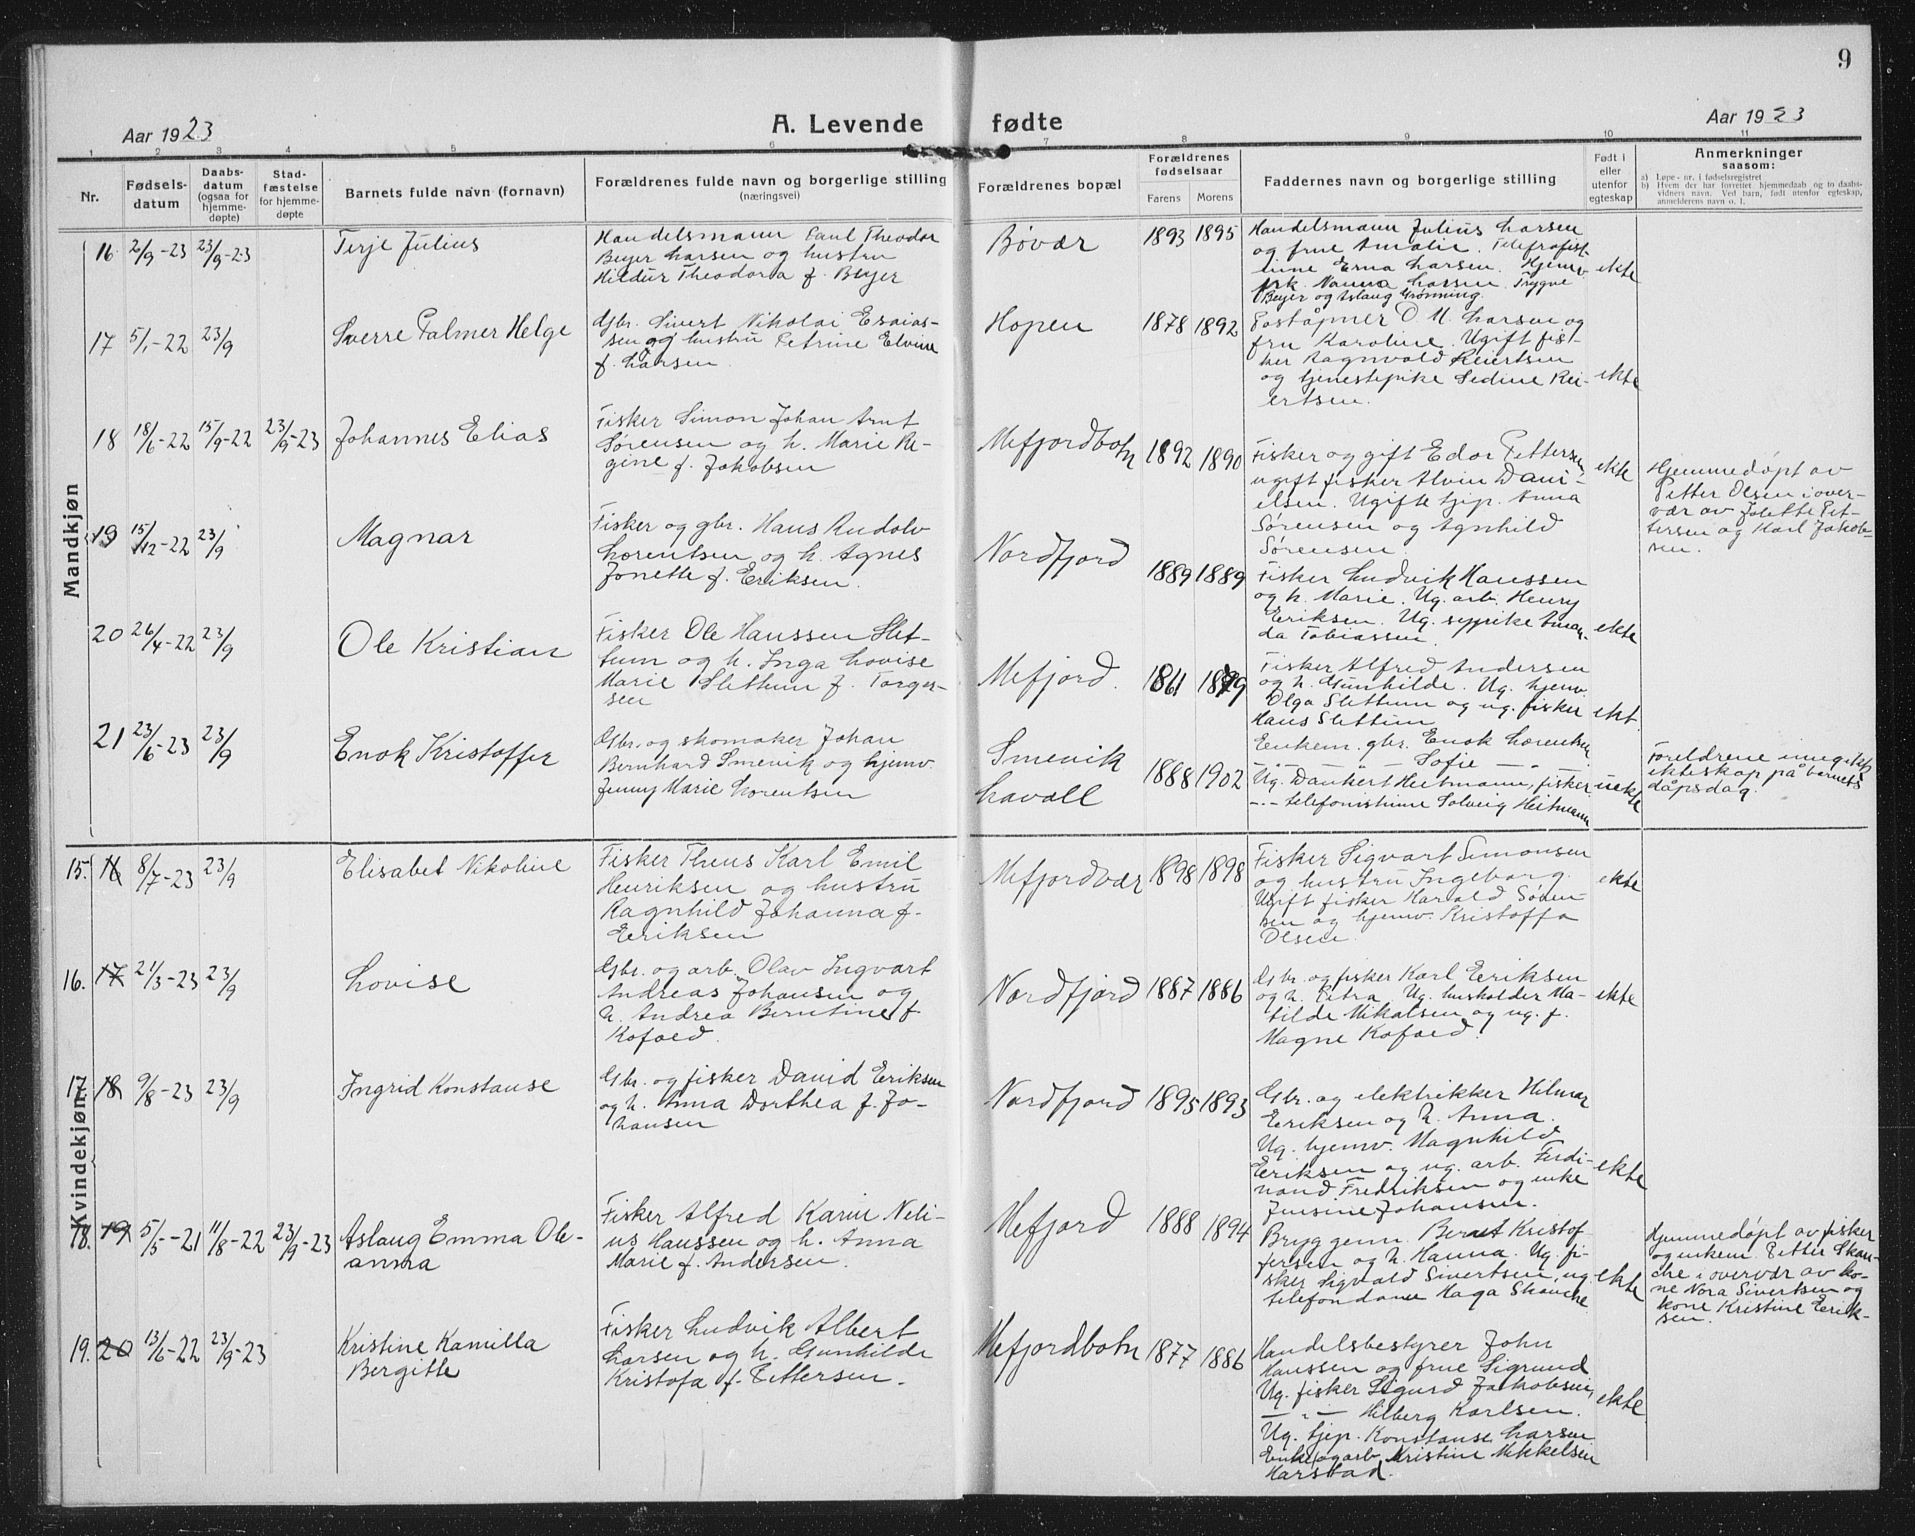 9
Aar 1923
A. Levende fødte
Aar 1923
1 2 3 4 5 6 7 8 9 10 11
Nr.
Fødsels-
datum
Daabs-
datum
(ogsaa for
hjemme-
døpte)
Stad-
fæstelse
for hjemme-
døpte
Barnets fulde navn (fornavn)
Forældrenes fulde navn og borgerlige stilling
(næringsvei)
Forældrenes bopæl
Forældrenes
fødselsaar
Farens Morens
Faddernes navn og borgerlige stilling
Født i
eller
utenfor
egteskap
Anmerkninger
saasom:
a) Løpe-nr. i fødselsregistret
b) Hvem der har forrettet hjemmedaab og to daabs-
vidners navn. Ved barn, født utenfor egteskap,
anmelderens navn o. l.
Mandkjøn
16 2/9-23 23/9-23
Terje Julius
Handelsmann Paul Theodor
Beyer Larsen og hustru
Hildur Theodora f. Beyer
Bøvær
1893 1895
Handelsmann Julius Larsen
og frue Amalie. Telegrafist-
inne Erna Larsen. Hjemv.
frk. Nanna Larsen. Trygve
Beyer og Aslaug Grønning.
ekte
17 5/1-22 23/9
Sverre Palmer Helge
Gbr. Sivert Nikolai Esaias-
sen og hustru Petrine Elvine
f. Larsen.
Hopen
1878 1892
Poståpner O. M. Larsen og
fru Karoline. Ugift fis-
ker Ragnvald Reiertsen
og tjenestepike Sedine Rei-
ertsen.
ekte
18 18/6-22 15/9-22 23/9-23
Johannes Elias
Fisker Simon Johan Arnt
Sørensen og h. Marie Re-
gine f. Jakobsen
Mefjordbotn
1892 1890
Fisker og gift Edor Pettersen,
ugift fisker Alvin Dani-
elsen. Ugifte tjp. Anna
Sørensen og Agnhild
Sørensen.
ekte
Hjemmedøpt av
Petter Olsen i over-
vær av Jolette Pet-
tersen og Karl Jakob-
sen.
19 15/12-22 23/9
Magnar
Fisker og gbr. Hans Rudolv
Lorentsen og h. Agnes
Jonette f. Eriksen.
Nordfjord
1889 1889
Fisker Ludvik Hanssen
og h. Marie. Ug. arb. Henry
Eriksen. Ug. sypike Aman-
da Tobiassen.
ekte
20 26/4-22 23/9
Ole Kristian
Fisker Ole Hanssen Slet-
tum og h. Inga Lovise
Marie Slettum f. Torger-
sen
Mefjord.
1861 1879
Fisker Alfred Andersen
og h. Gunhilde. Ug. hjemv.
Olga Slettum og ug. fisker
Hans Slettum
ekt.
21 23/6-23 23/9
Enok Kristoffer
Gbr. og skomaker Johan
Bernhard Smevik og hjemv.
Jenny Marie Lorentsen
Smevik
Lavoll
1888 1902
Enkem. gbr. Enok Lorentsen
— " — Sofie — " —
Ug. Dankert Heitmann, fisker
- " - telefonistinne Solveig Heitmann
uekte
Foreldrene inngikk
ekteskap på barnets
dåpsdag.
Kvindekjøn
15. 16 8/7-23 23/9
Elisabet Nikoline
Fisker Theus Karl Emil
Henriksen og hustru
Ragnhild Johanna f.
Eriksen
Mefjordvær
1898 1898
Fisker Sigvart Simonsen
og hustru Ingeborg.
Ugift fisker Harald Søren-
sen og hjemv. Kristoffa
Olsen.
ekte
16. 17 21/3-23 23/9
Lovise
Gbr. og arb. Olav Ingvart
Andreas Johansen og
h. Andrea Berntine f.
Kofoed.
Nordfjord
1887 1886
Gbr. og fisker Karl Eriksen
og h. Petra. Ug. husholder Ma-
tilde Mikalsen og ug. f.
Magne Kofoed.
ekte
17. 18 9/8-23 23/9
Ingrid Konstanse
Gbr. og fisker David Eriksen
og h. Anna Dorthea f. Jo-
hansen
Nordfjord
1895 1893
Gbr. og elektrikker Hilmar
Eriksen og h. Anna.
Ug. hjemv. Magnhild
Eriksen og ug. arb. Ferdi-
nand Fredriksen og enke
Jensine Johansen.
ekte
18. 19 5/5-21 11/8-22 23/9-23
Aslaug Emma Ole-
anna
Fisker Alfred Karin Neli-
us Hanssen og h. Anna
Marie f. Andersen.
Mefjord
1888 1894
Bryggem. Bernt Kristof-
fersen og h. Hanna. Ug. fi-
sker Sigvald Sivertsen, ug.
telefondame Haga Skanche
ekte
Hjemmedøpt av fisker
og enkem. Petter Skan-
che i overvær av ko-
ne Nora Sivertsen og
kone Kristine Erik-
sen.
19. 20 13/6-22 23/9-23
Kristine Kamilla
Bergitte
Fisker Ludvik Albert
Larsen og h. Gunhilde
Kristofa f. Pettersen.
Mefjordbotn
1877 1886
Handelsbestyrer John
Hanssen og frue Sigrund
Ug. fisker Sigurd Jakobsen,
— " — Hilberg Karlsen.
Ug. tjep. Konstanse Larsen
Enke og arb. Kristine Mikkelsen
Harstad.
ekte